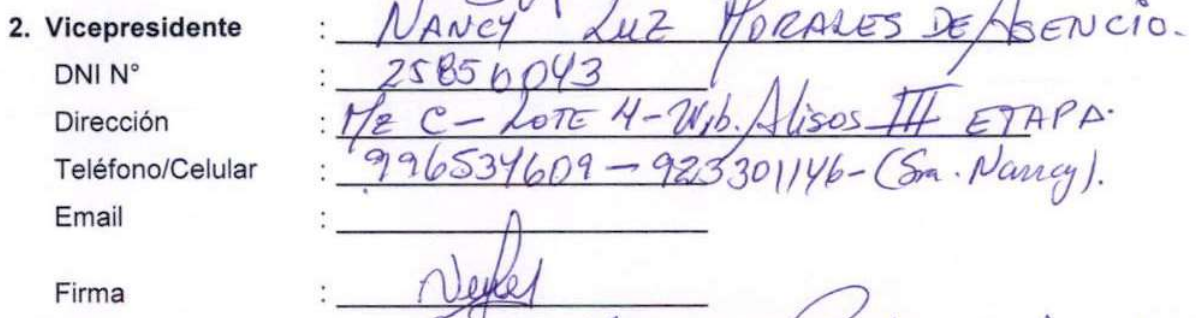 2. Vicepresidente : NANCY LUZ MORALES DE ASENCIO.
DNI N° : 25850043
Dirección : Mz C - LOTE 4 - Urb. Alisos III ETAPA.
Teléfono/Celular : 996534609 - 923301146 - (Sra. Nancy).
Email :
Firma :